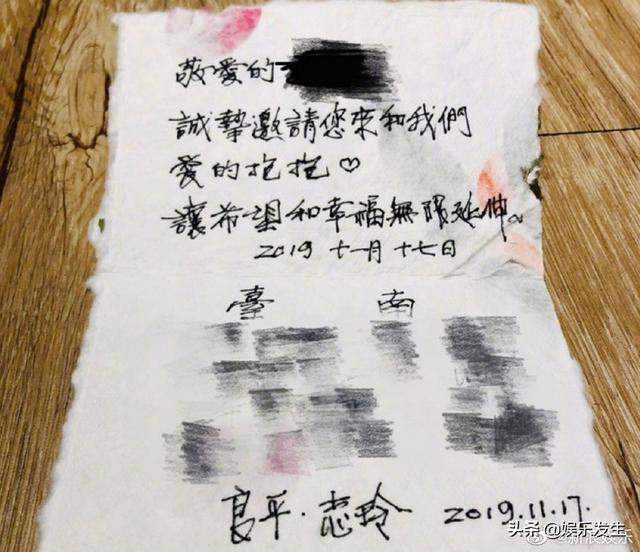 敬愛的
誠摯邀請您來和我們
愛的抱抱♡
讓希望和幸福無限延伸。
2019 十一月 十七日
臺 南
良平.志玲 2019.11.17.
头条 @娱乐发生